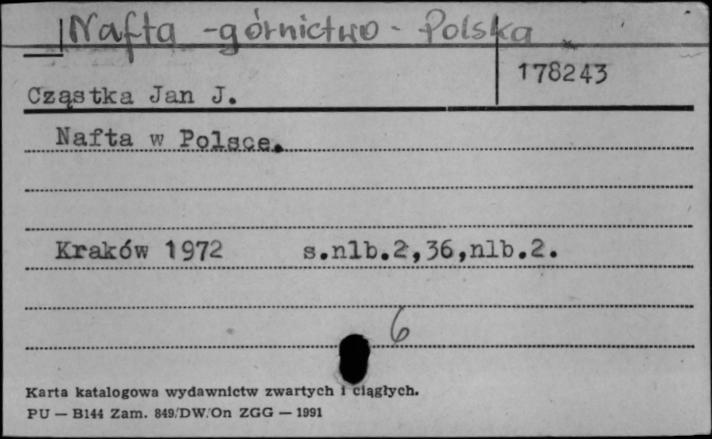 Nafta - górnictwo - Polska
178243
Cząstka Jan J.
Nafta w Polsce.
Kraków 1972 s.nlb.2,36,nlb.2.
6
Karta katalogowa wydawnictw zwartych i ciągłych.
PU — B144 Zam. 849/DW/On ZGG — 1991